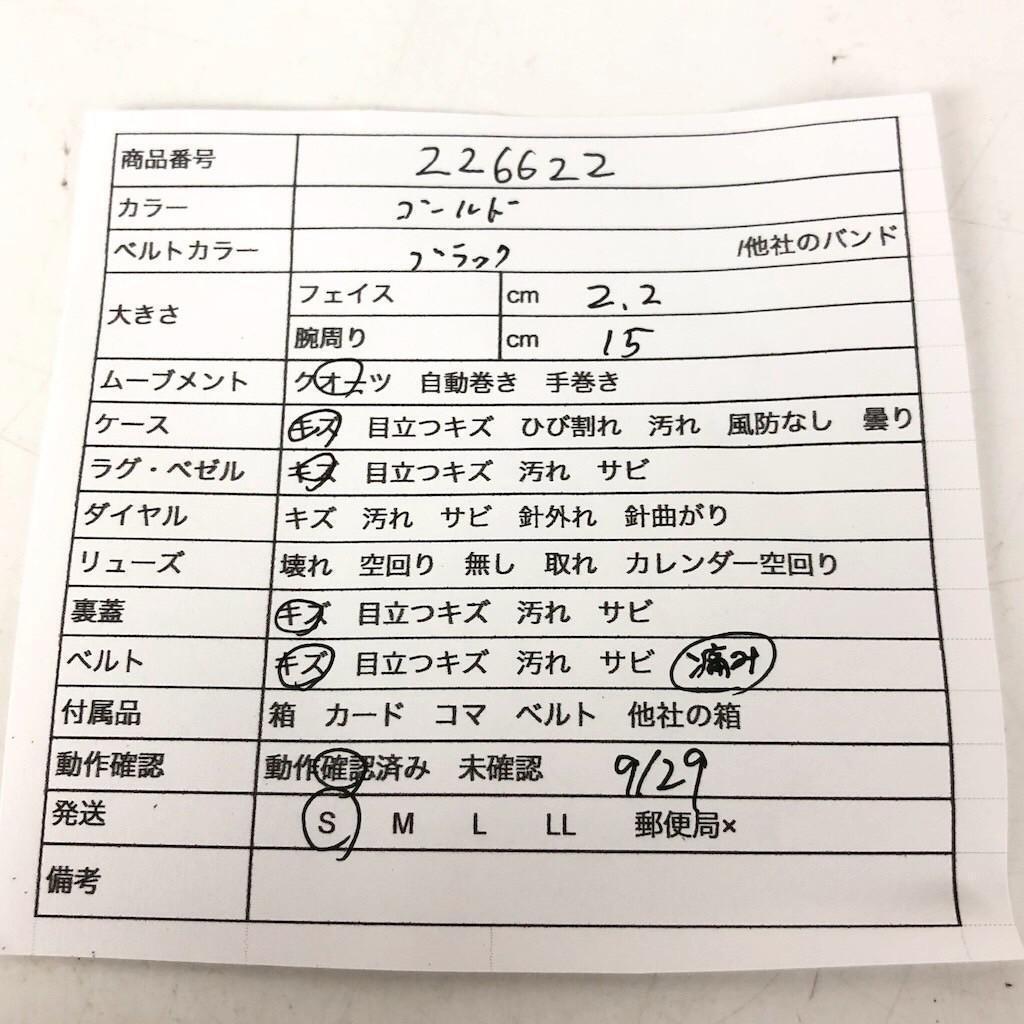 商品番号 226622
カラー ゴールド
ベルトカラー ブラック /他社のバンド
大きさ フェイス cm 2.2
腕周り cm 15
ムーブメント クオーツ 自動巻き 手巻き
ケース キズ 目立つキズ ひび割れ 汚れ 風防なし 曇り
ラグ・ベゼル キズ 目立つキズ 汚れ サビ
ダイヤル キズ 汚れ サビ 針外れ 針曲がり
リューズ 壊れ 空回り 無し 取れ カレンダー空回り
裏蓋 キズ 目立つキズ 汚れ サビ
ベルト キズ 目立つキズ 汚れ サビ 痛み
付属品 箱 カード コマ ベルト 他社の箱
動作確認 動作確認済み 未確認 9/29
発送 S M L LL 郵便局×
備考